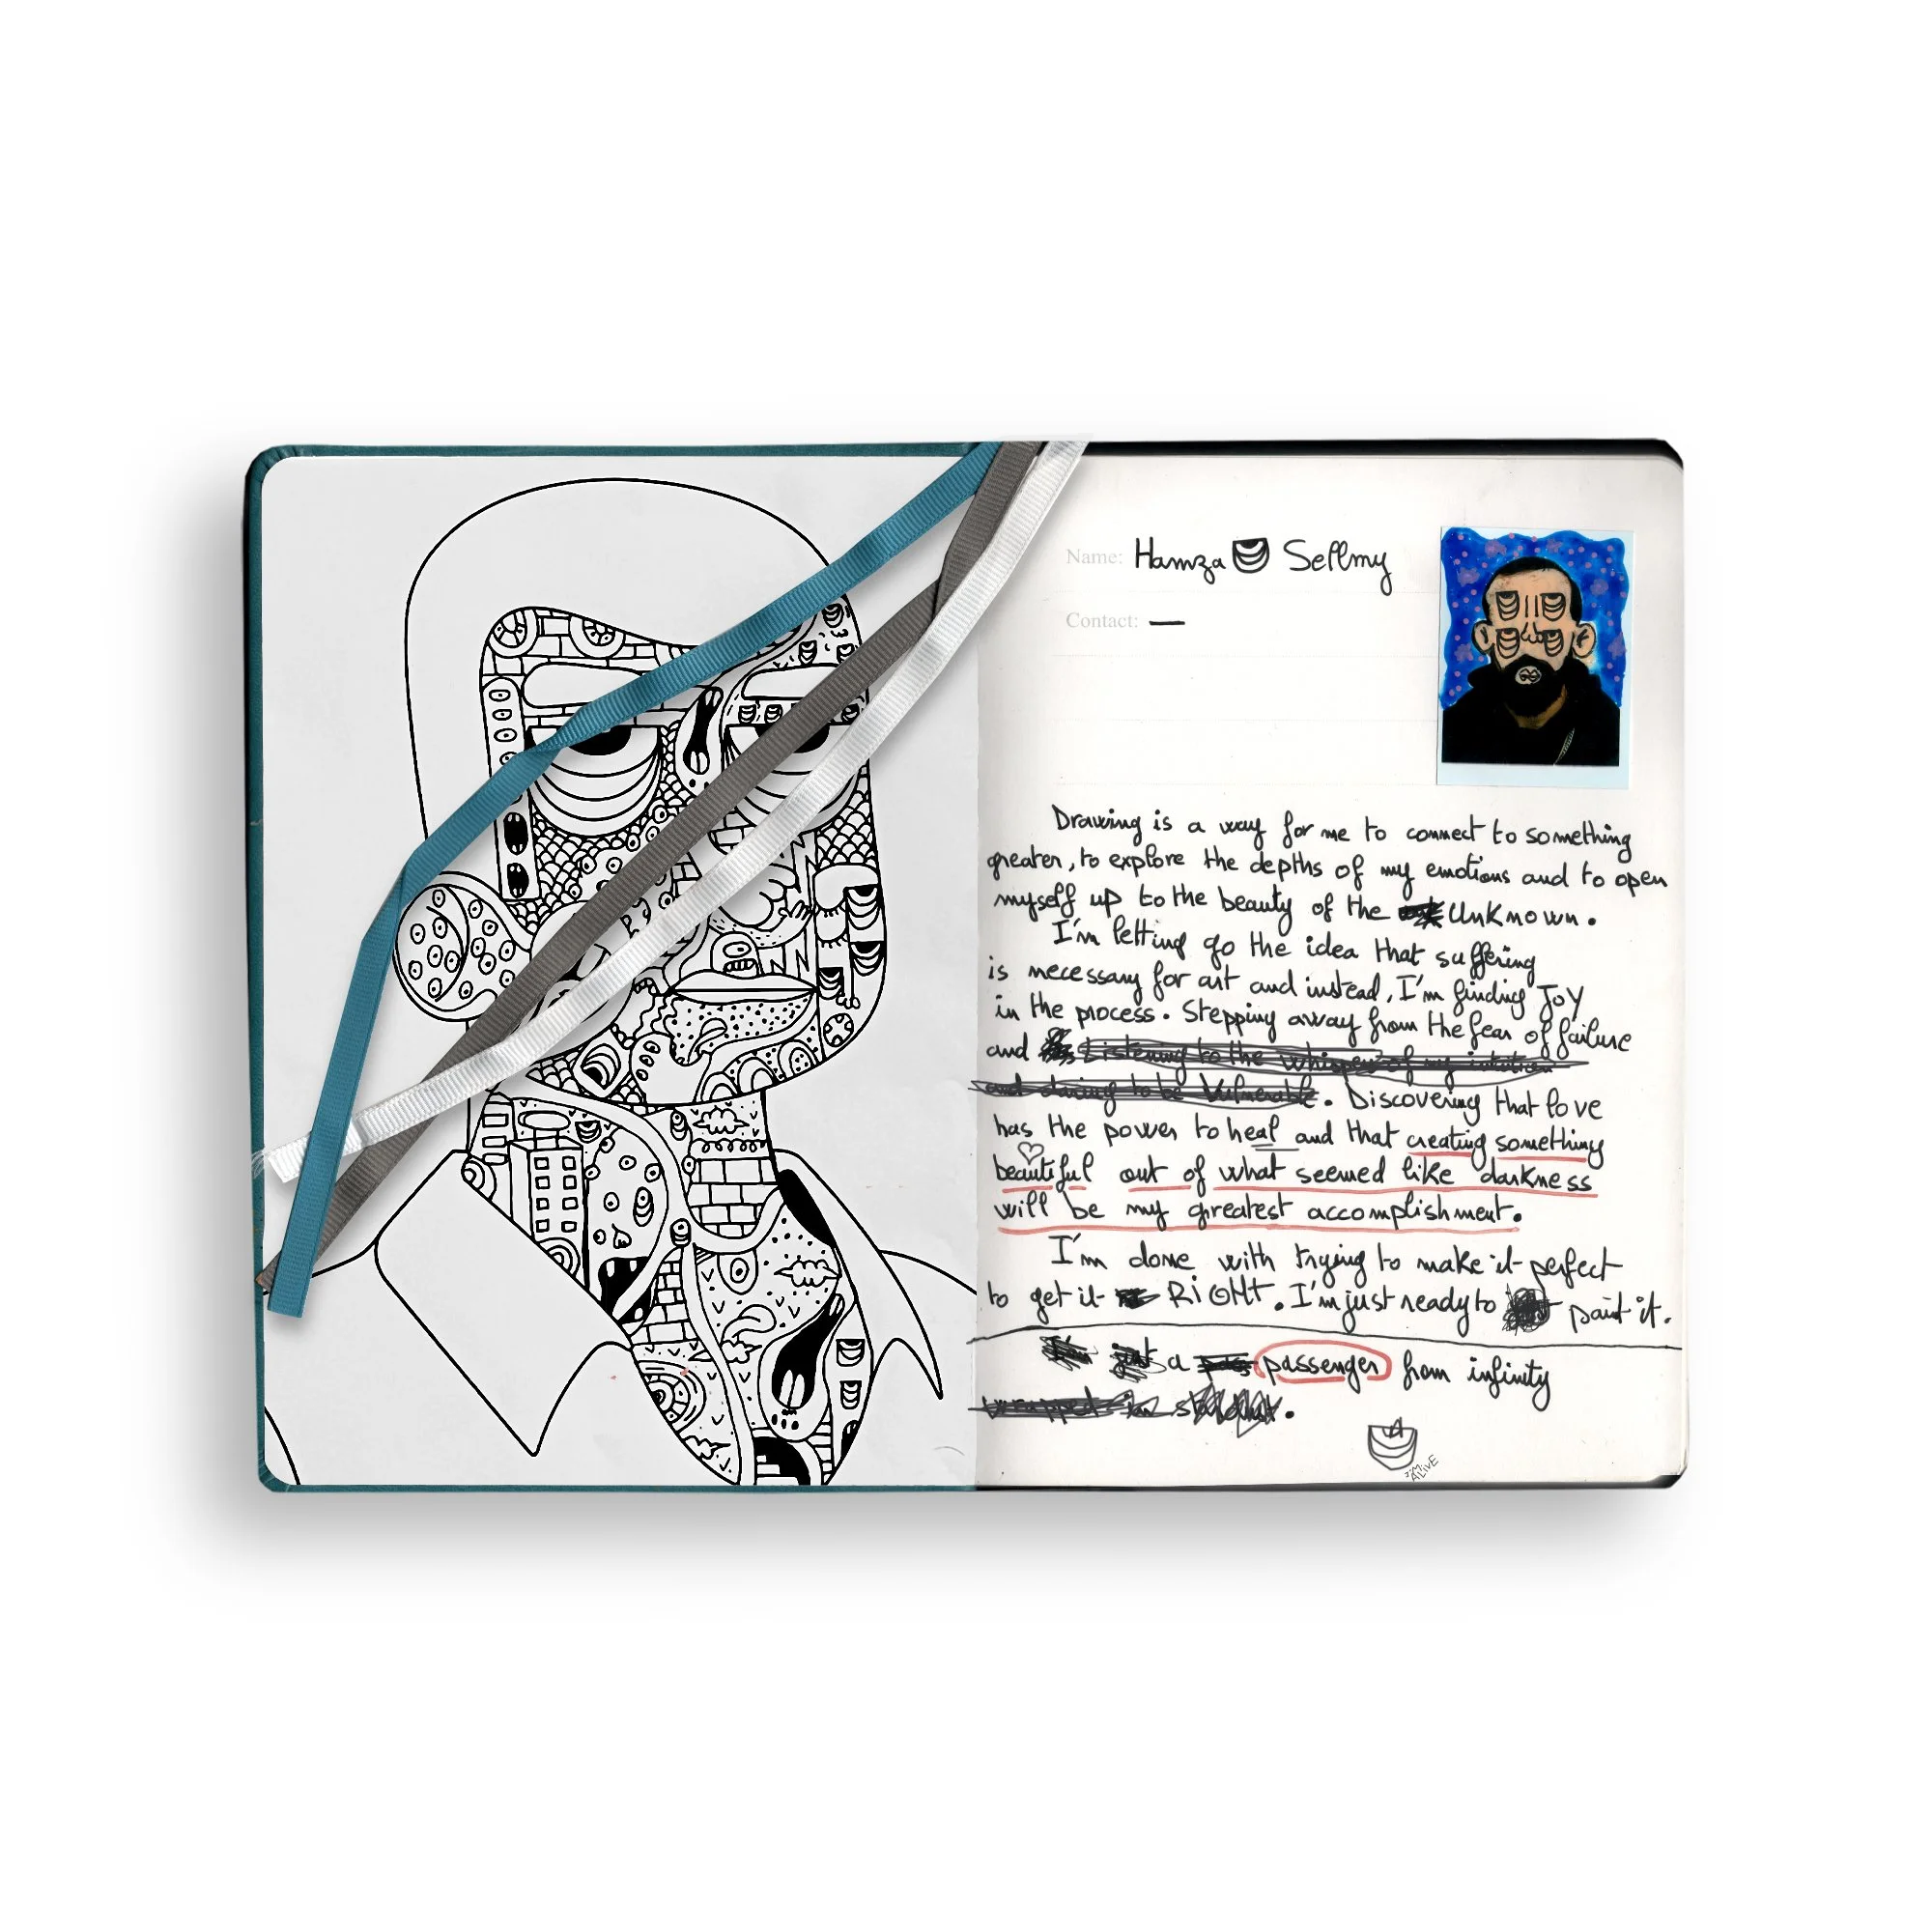 Name: Hamza Sellmy
Contact: —
Drawing is a way for me to connect to something
greater, to explore the depths of my emotions and to open
myself up to the beauty of the UnKnown.
I'm letting go the idea that suffering
is necessary for art and instead, I'm finding JoY
in the process. Stepping away from the fear of failure
and Listening to the whisper of my intuition
and daring to be Vulnerable. Discovering that love
has the power to heal and that creating something
beautiful out of what seemed like darkness
will be my greatest accomplishment.
I'm done with trying to make it perfect
to get it RiGHT. I'm just ready to paint it.
I'm just a passenger from infinity
wrapped in
I'M ALiVE